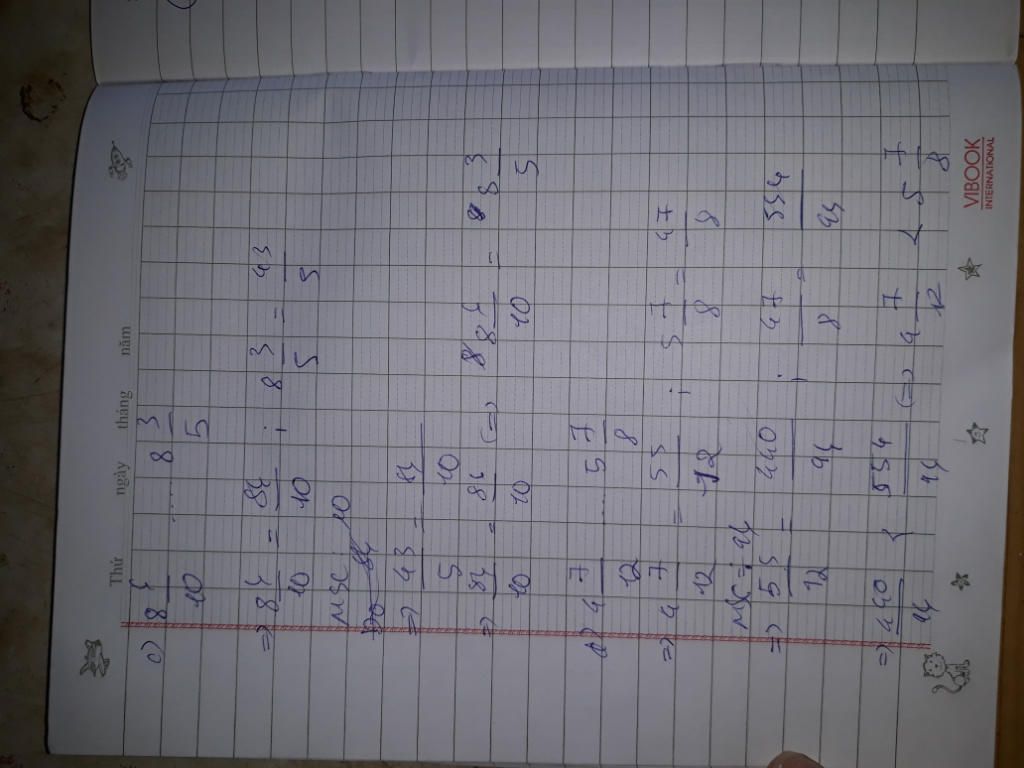 Thứ ngày tháng năm
c) 8 6/10 ... 8 3/5
=> 8 6/10 = 86/10 ; 8 3/5 = 43/5
MSC: 10
=> 43/5 = 86/10
=> 86/10 = 86/10 (=> 8 6/10 = 8 3/5
d) 4 7/12 ... 5 7/8
=> 4 7/12 = 55/12 ; 5 7/8 = 47/8
MSC = 96
=> 55/12 = 440/96 ; 47/8 = 564/96
=> 440/96 < 564/96 (=> 4 7/12 < 5 7/8
VIBOOK
INTERNATIONAL